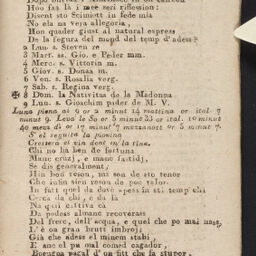 Hoo faa là i mee seri riflession:
Disent sto Scimiott in fede mia
No ela na vera allegoria,
Hoo quader giust al natural espress
De la fegura del mond del temp d'adess?
2 Lun. s. Steven re
3 Mart. ss. Gio. e Peder mm.
4 Merc. s. Vittoria m.
5 Giov. s. Donaa m.
6 Ven. s. Rosalia verg.
7 Sab. s. Regina verg.
✠ 8 Dom. la Nativitaa de la Madonna
9 Lun. s. Gioachim pader de M. V.
Luna piena ai 9 a minut 14 mattina or ital. 7
minut 9. Leva le So or 5 minut 33 or ital. 10 minut
40 mezz dì or 17 minut 7 mezzanott or 5 minut 7.
S' el seguita la piomva
Cressera el vin dent in la tina.
Chi no ha ben de fortuna
Manc cruzj, e manc fastidj,
Se dis generalment;
Hin bon reson, ma son de sto tenor
Che infin sien reson da poc valor.
In fatt quel da dove spess fa stì temp chì
Cerca da chi, e da là
Na quai cattiva ca
Da podess almanc recoverass
Del frecc, dell'acqua, e quel che po mai nass,
L'è on gran brutt imbroj;
Già che adess el minem stabi
E anc el pu mal comed cagador,